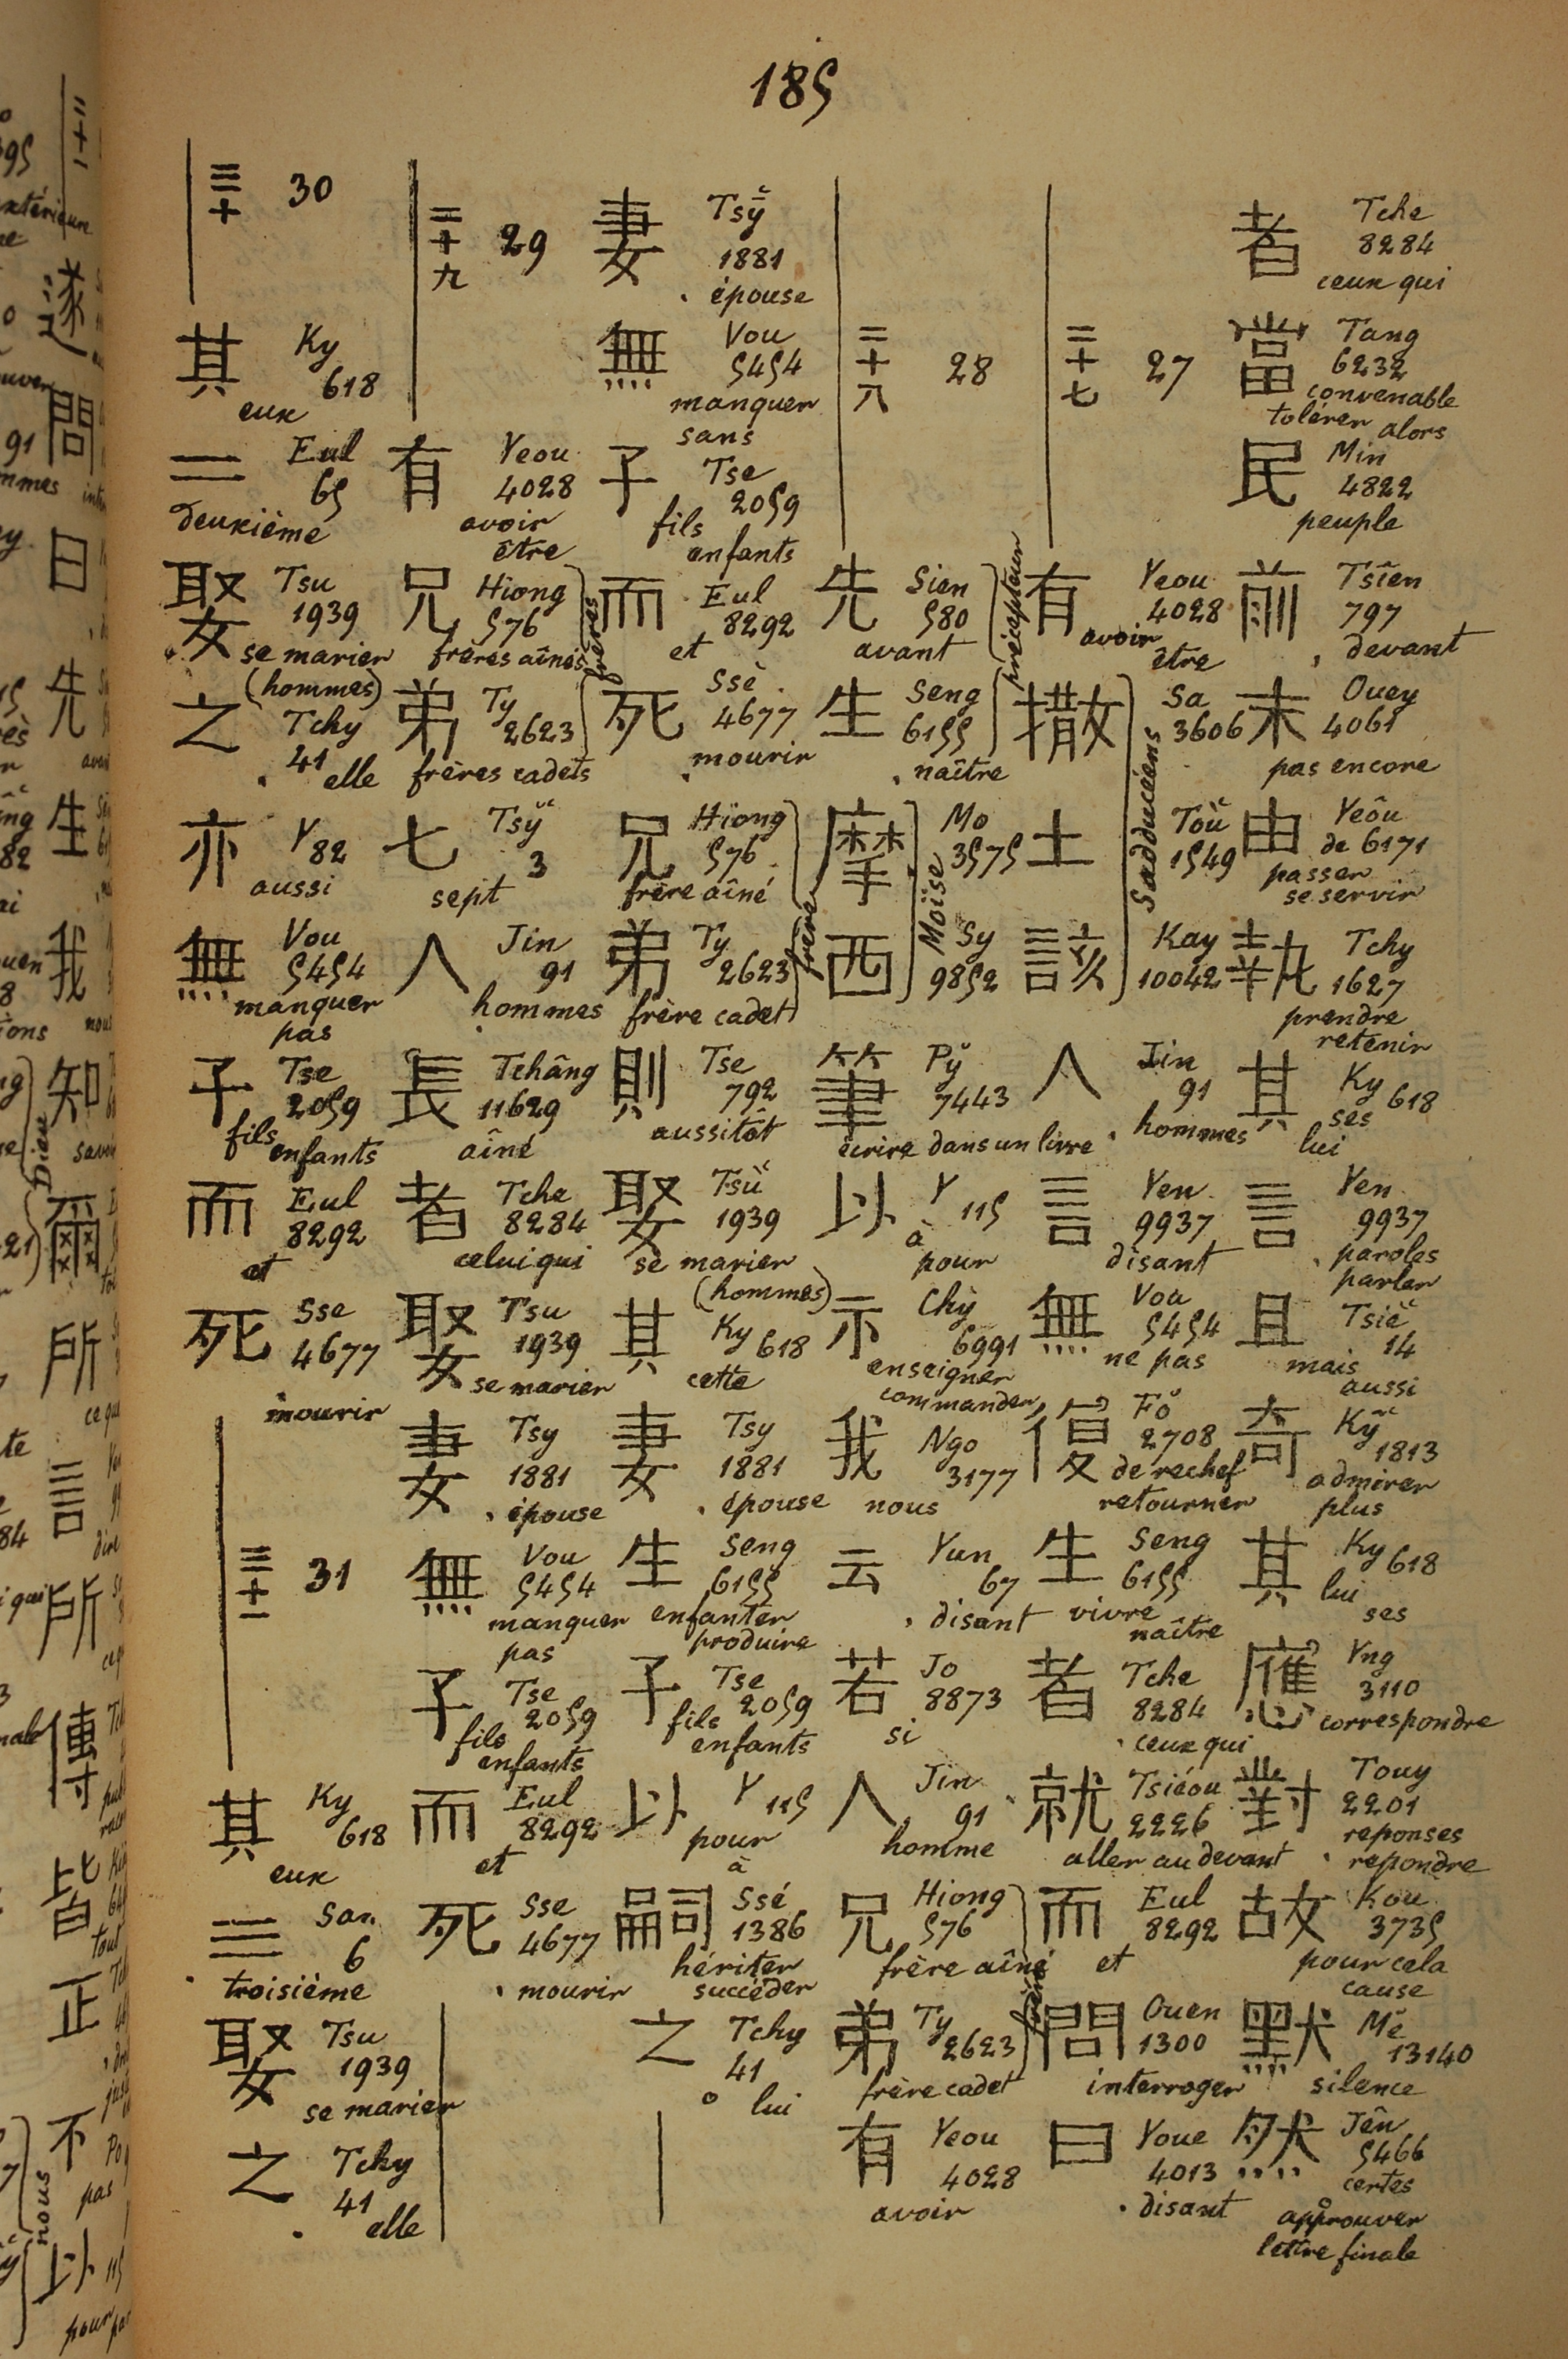 185
者 Tche 8284 ceux qui
當 Tang 6232 convenable tolérer alors
民 Min 4822 peuple
前 Tsîen 797 devant
未 Ouey 4061 pas encore
由 Yeôu de 6171 passer se servir
執 Tchy 1627 prendre retenir
其 Ky 618 ses lui
言 Yen 9937 paroles parler
且 Tsiè 14 mais aussi
奇 Ky 1813 admirer plus
其 Ky 618 lui ses
應 Yng 3110 correspondre
對 Touy 2201 reponses repondre
故 Kou 3735 pour cela cause
默 Mĕ 13140 silence
然 Jên 5466 certes approuver lettre finale
二十七 27
有 Yeou 4028 avoir être
撒 Sa 3606
土 Tòu 1549
該 Kay 10042
Sadducéens
人 Jin 91 hommes
言 Yen 9937 disant
無 Vou 5454 ne pas
復 Fŏ 2708 de rechef retourner
生 Seng 6155 vivre naître
者 Tche 8284 ceux qui
就 Tsiéou 2226 aller au devant
而 Eul 8292 et
問 Ouen 1300 interroger
曰 Youe 4013 disant
二十八 28
先 Sien 580 avant
生 Seng 6155 naître
précepteur
摩 Mo 3575
西 Sy 9852
Moïse
筆 Py 7443 écrire dans un livre
以 Y 115 à pour
示 Chy 6991 enseigner commander
我 Ngo 3177 nous
云 Yun 67 disant
若 Jo 8873 si
人 Jin 91 homme
兄 Hiong 576 frère aîné
弟 Ty 2623 frère cadet
有 Yeou 4028 avoir
妻 Tsy 1881 épouse
無 Vou 5454 manquer sans
子 Tse 2059 fils enfants
而 Eul 8292 et
死 Ssè 4677 mourir
兄 Hiong 576 frère aîné
弟 Ty 2623 frère cadet
frère
則 Tse 792 aussitôt
娶 Tsu 1939 se marier (hommes)
其 Ky 618 cette
妻 Tsy 1881 épouse
生 Seng 6155 enfanter produire
子 Tse 2059 fils enfants
以 Y 115 pour à
嗣 Ssé 1386 hériter succéder
之 Tchy 41 lui
二十九 29
有 Yeou 4028 avoir être
兄 Hiong 576 frères aînés
弟 Ty 2623 frères cadets
frères
七 Tsy 3 sept
人 Jin 91 hommes
長 Tchâng 11629 aîné
者 Tche 8284 celui qui
娶 Tsu 1939 se marier
妻 Tsy 1881 épouse
無 Vou 5454 manquer pas
子 Tse 2059 fils enfants
而 Eul 8292 et
死 Sse 4677 mourir
三十 30
其 Ky 618 eux
二 Eul 65 deuxième
娶 Tsu 1939 se marier (hommes)
之 Tchy 41 elle
亦 Y 82 aussi
無 Vou 5454 manquer pas
子 Tse 2059 fils enfants
而 Eul 8292 et
死 Sse 4677 mourir
三十一 31
其 Ky 618 eux
三 San 6 troisième
娶 Tsu 1939 se marier
之 Tchy 41 elle
遂
問
日
先
生
我
知
Dieu
爾
所
言
所
傳
皆 tout
正
不 pas
nous
以 115 pour